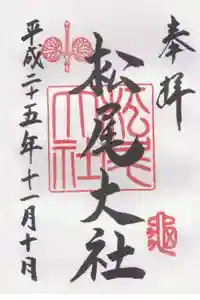 奉拝
松尾大社
松尾大社
平成二十五年十一月十日